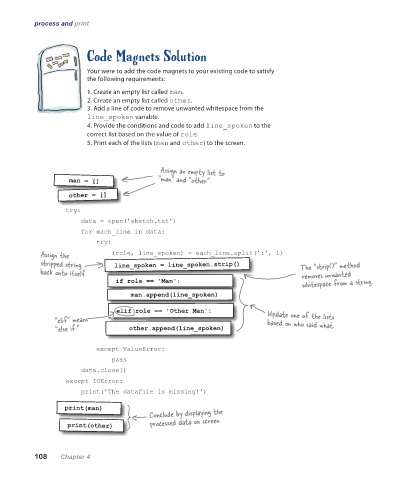 process and print
Code Magnets Solution
Your were to add the code magnets to your existing code to satisfy
the following requirements:
1. Create an empty list called man.
2. Create an empty list called other.
3. Add a line of code to remove unwanted whitespace from the
line_spoken variable.
4. Provide the conditions and code to add line_spoken to the
correct list based on the value of role.
5. Print each of the lists (man and other) to the screen.
man = []
other = []
Assign an empty list to
"man" and "other".
try:
data = open('sketch.txt')
for each_line in data:
try:
(role, line_spoken) = each_line.split(':', 1)
Assign the
stripped string
back onto itself.
line_spoken = line_spoken.strip()
The "strip()" method
removes unwanted
whitespace from a string.
if role == 'Man':
man.append(line_spoken)
"elif" means
"else if."
elif role == 'Other Man':
other.append(line_spoken)
Update one of the lists
based on who said what.
except ValueError:
pass
data.close()
except IOError:
print('The datafile is missing!')
print(man)
print(other)
Conclude by displaying the
processed data on screen.
108 Chapter 4